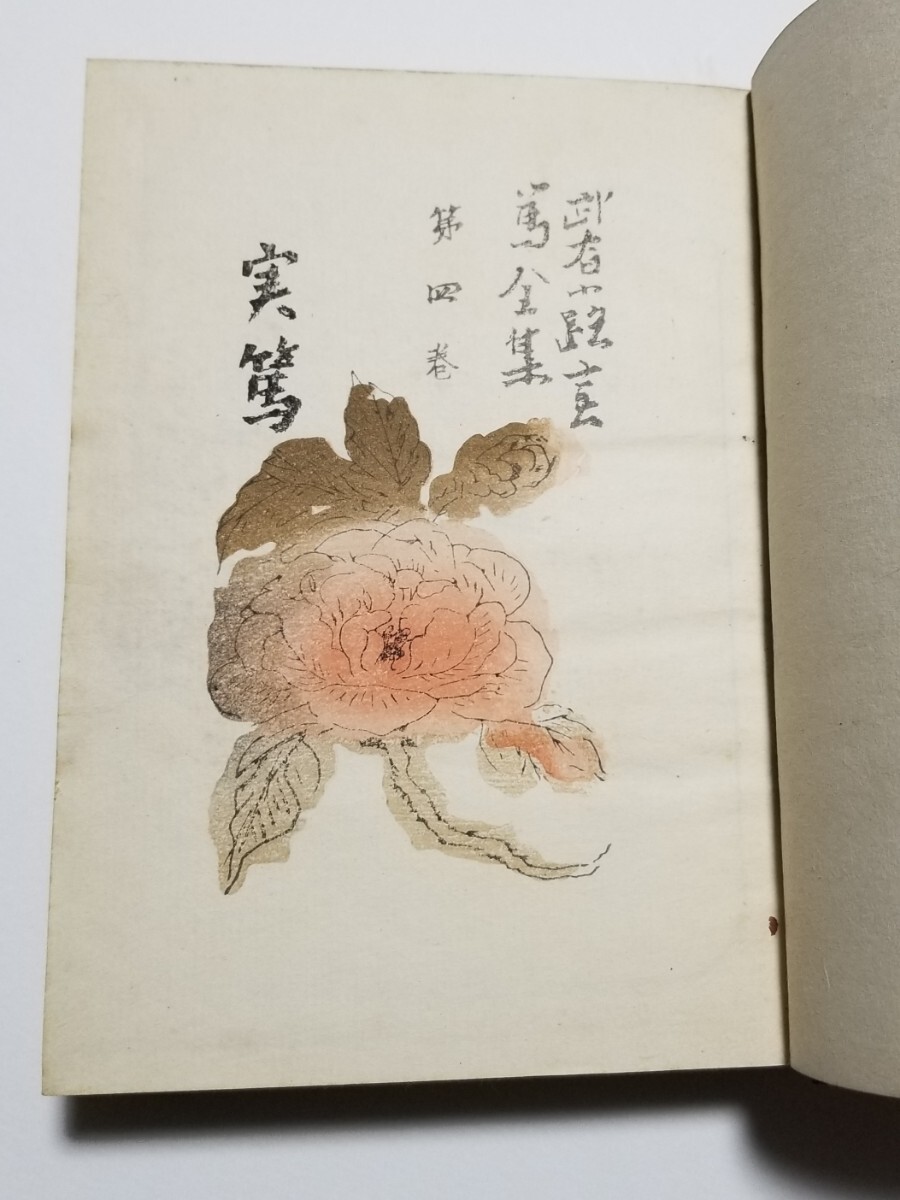 武者小路実
篤全集
第四巻
実篤